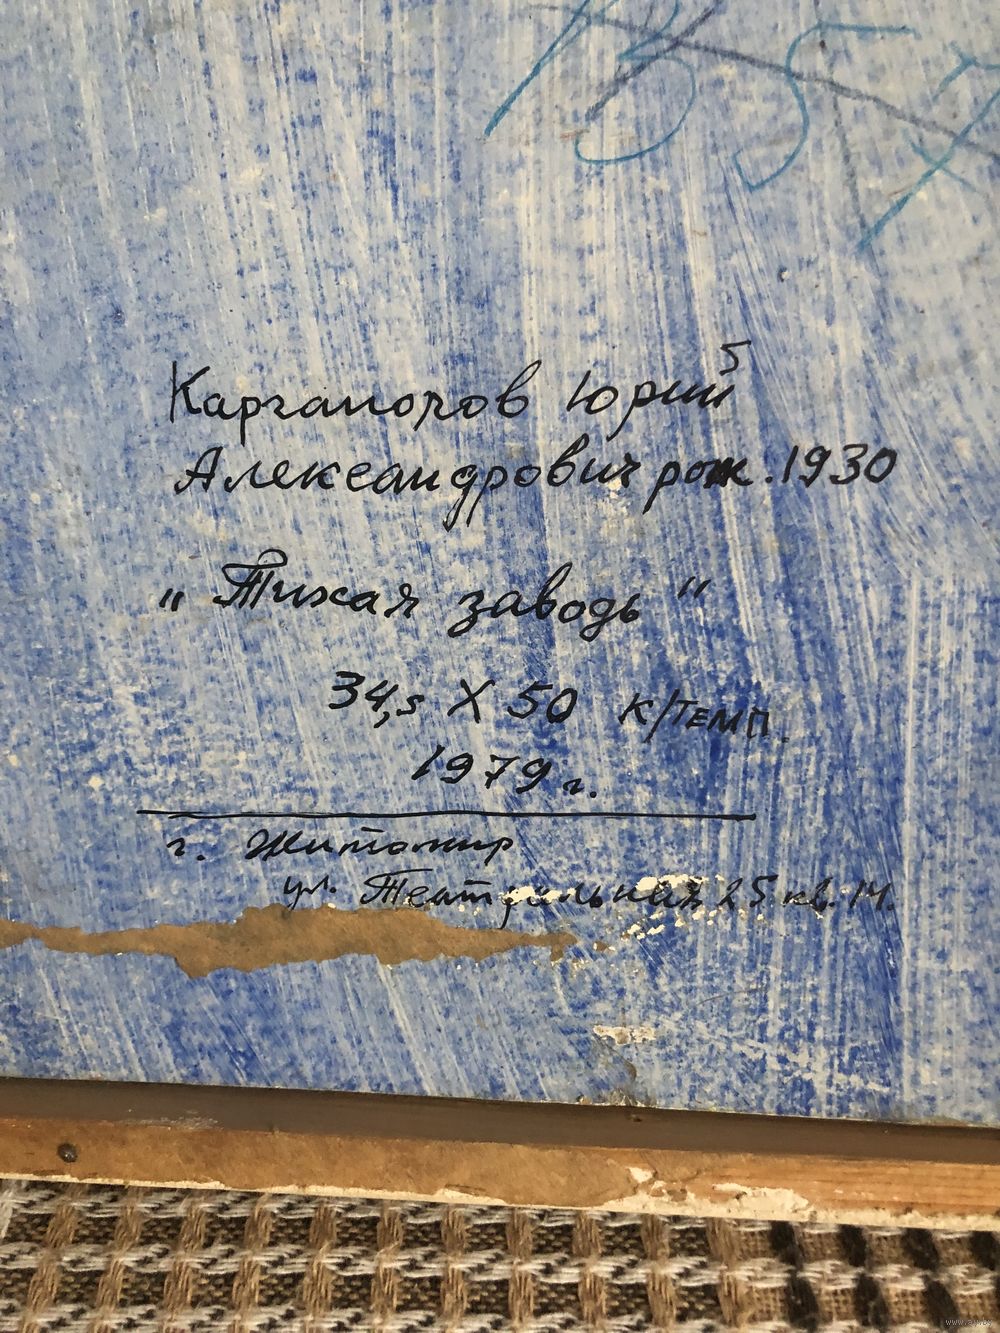 Каргаполов Юрий
Александрович рож. 1930
„Тихая заводь"
34,5 X 50 к/темп.
1979 г.
г. Житомир
ул. Театральная 25 кв. 14.